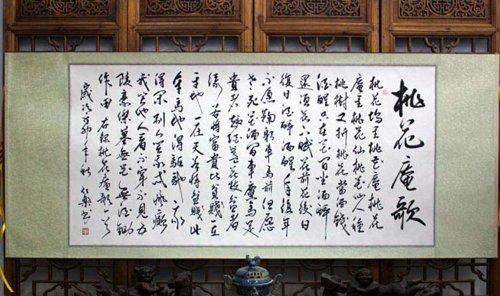 桃花庵歌
桃花塢里桃花庵桃花
庵里桃花仙桃花仙人種
桃樹又折桃花換酒錢
酒醒只在花前坐酒醉
還須花下眠花前花後日
復日酒醉酒醒年復年
不願鞠躬車馬前但願
老死花酒間車塵馬足
貴者趣酒盞花枝貧者
緣若將富貴比貧賤一在
平地一在天若將貧賤比
車馬他得驅馳我
得閒別人笑我忒風癲
我笑他人看不穿不見五
陵豪傑墓無花無酒鋤
作田右錄桃花庵歌一首
歲次年秋書